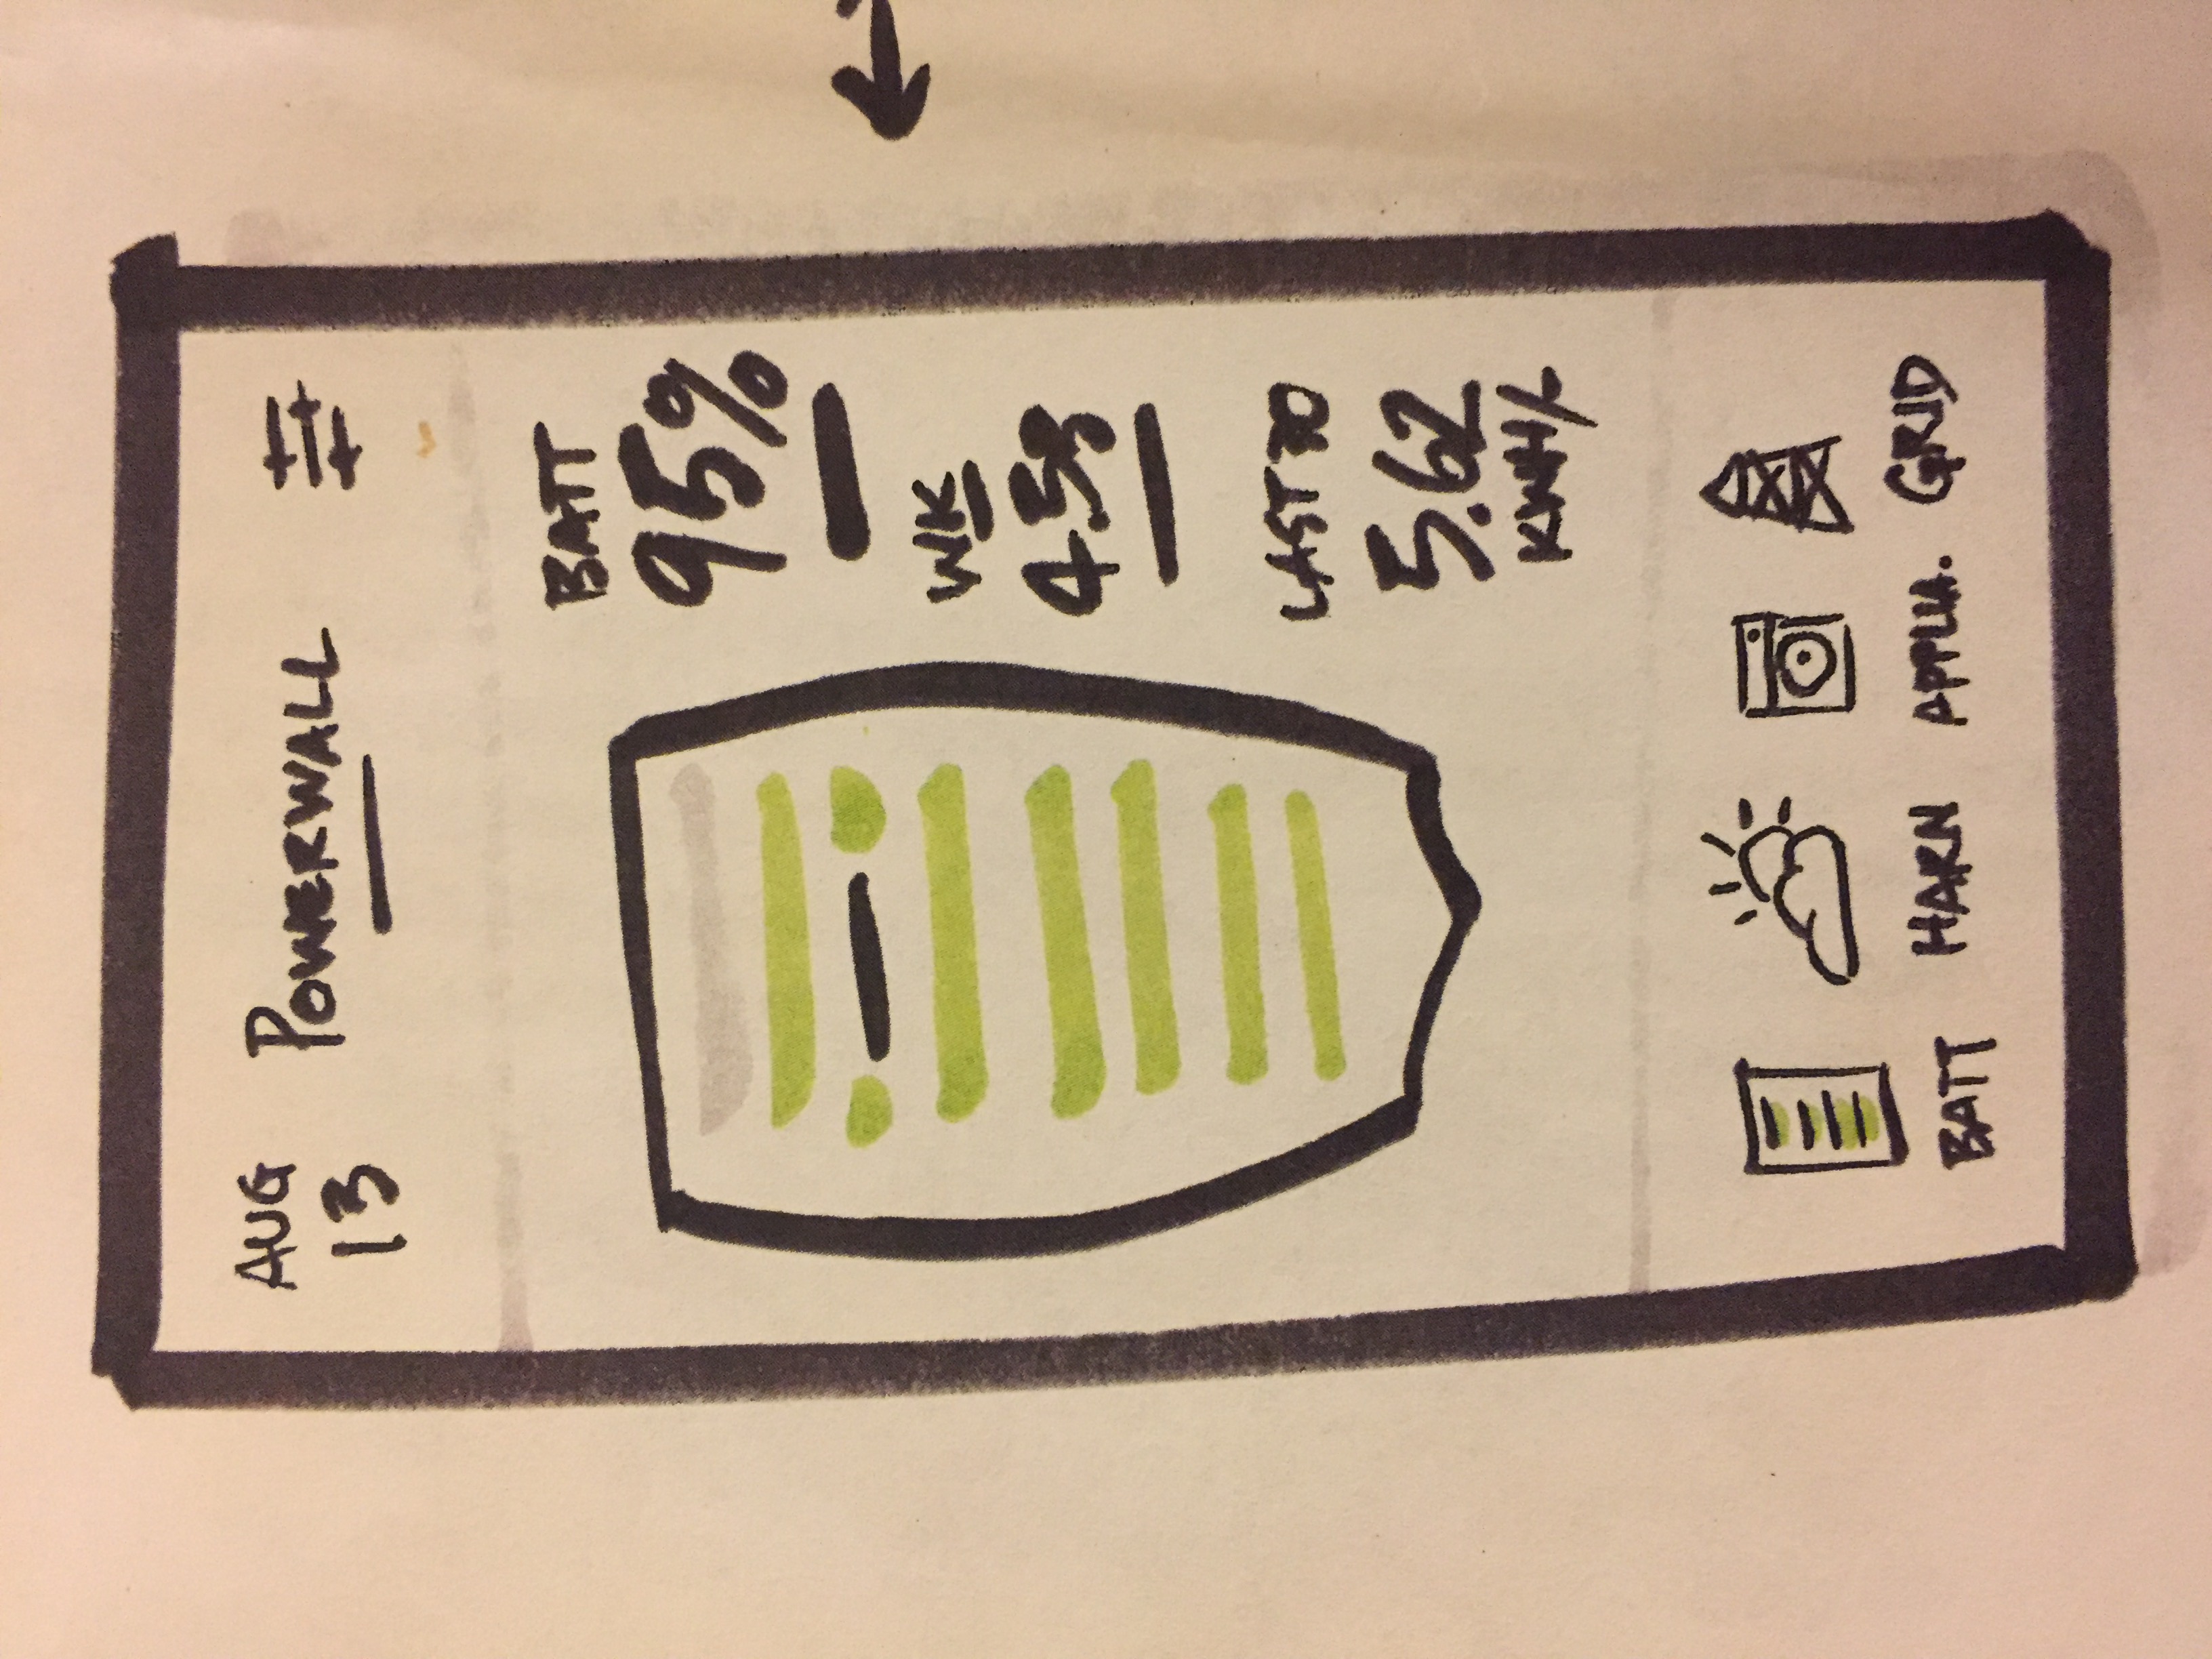 AUG
13
POWERWALL
BATT
95%
WK
4.53
LAST 30
5.62
KWH/
BATT
HARN
APPLIA.
GRID